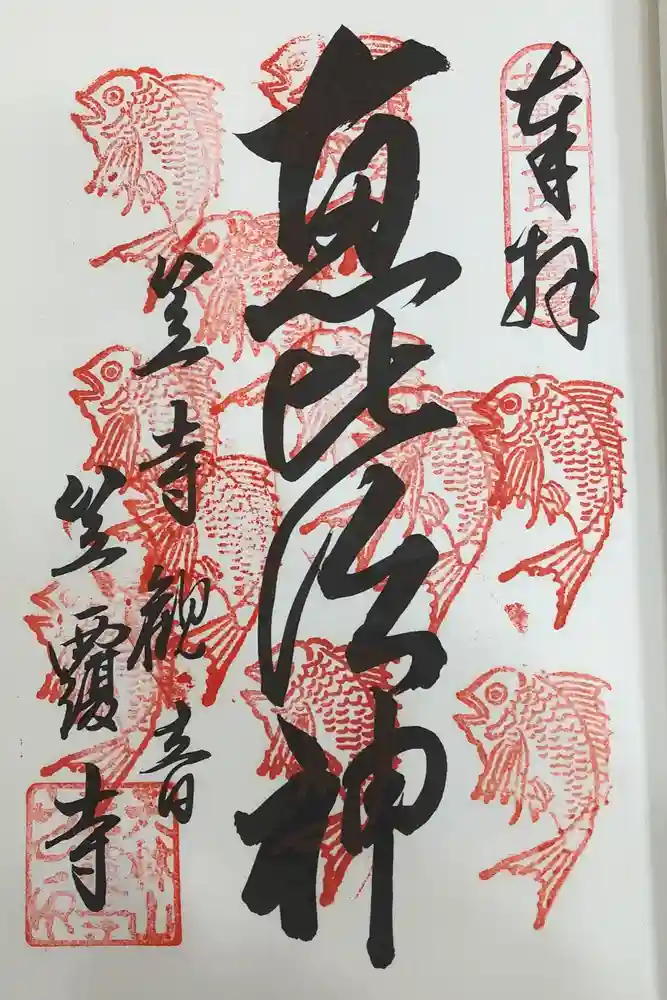 奉拝
恵比寿神
笠寺観音
笠覆寺